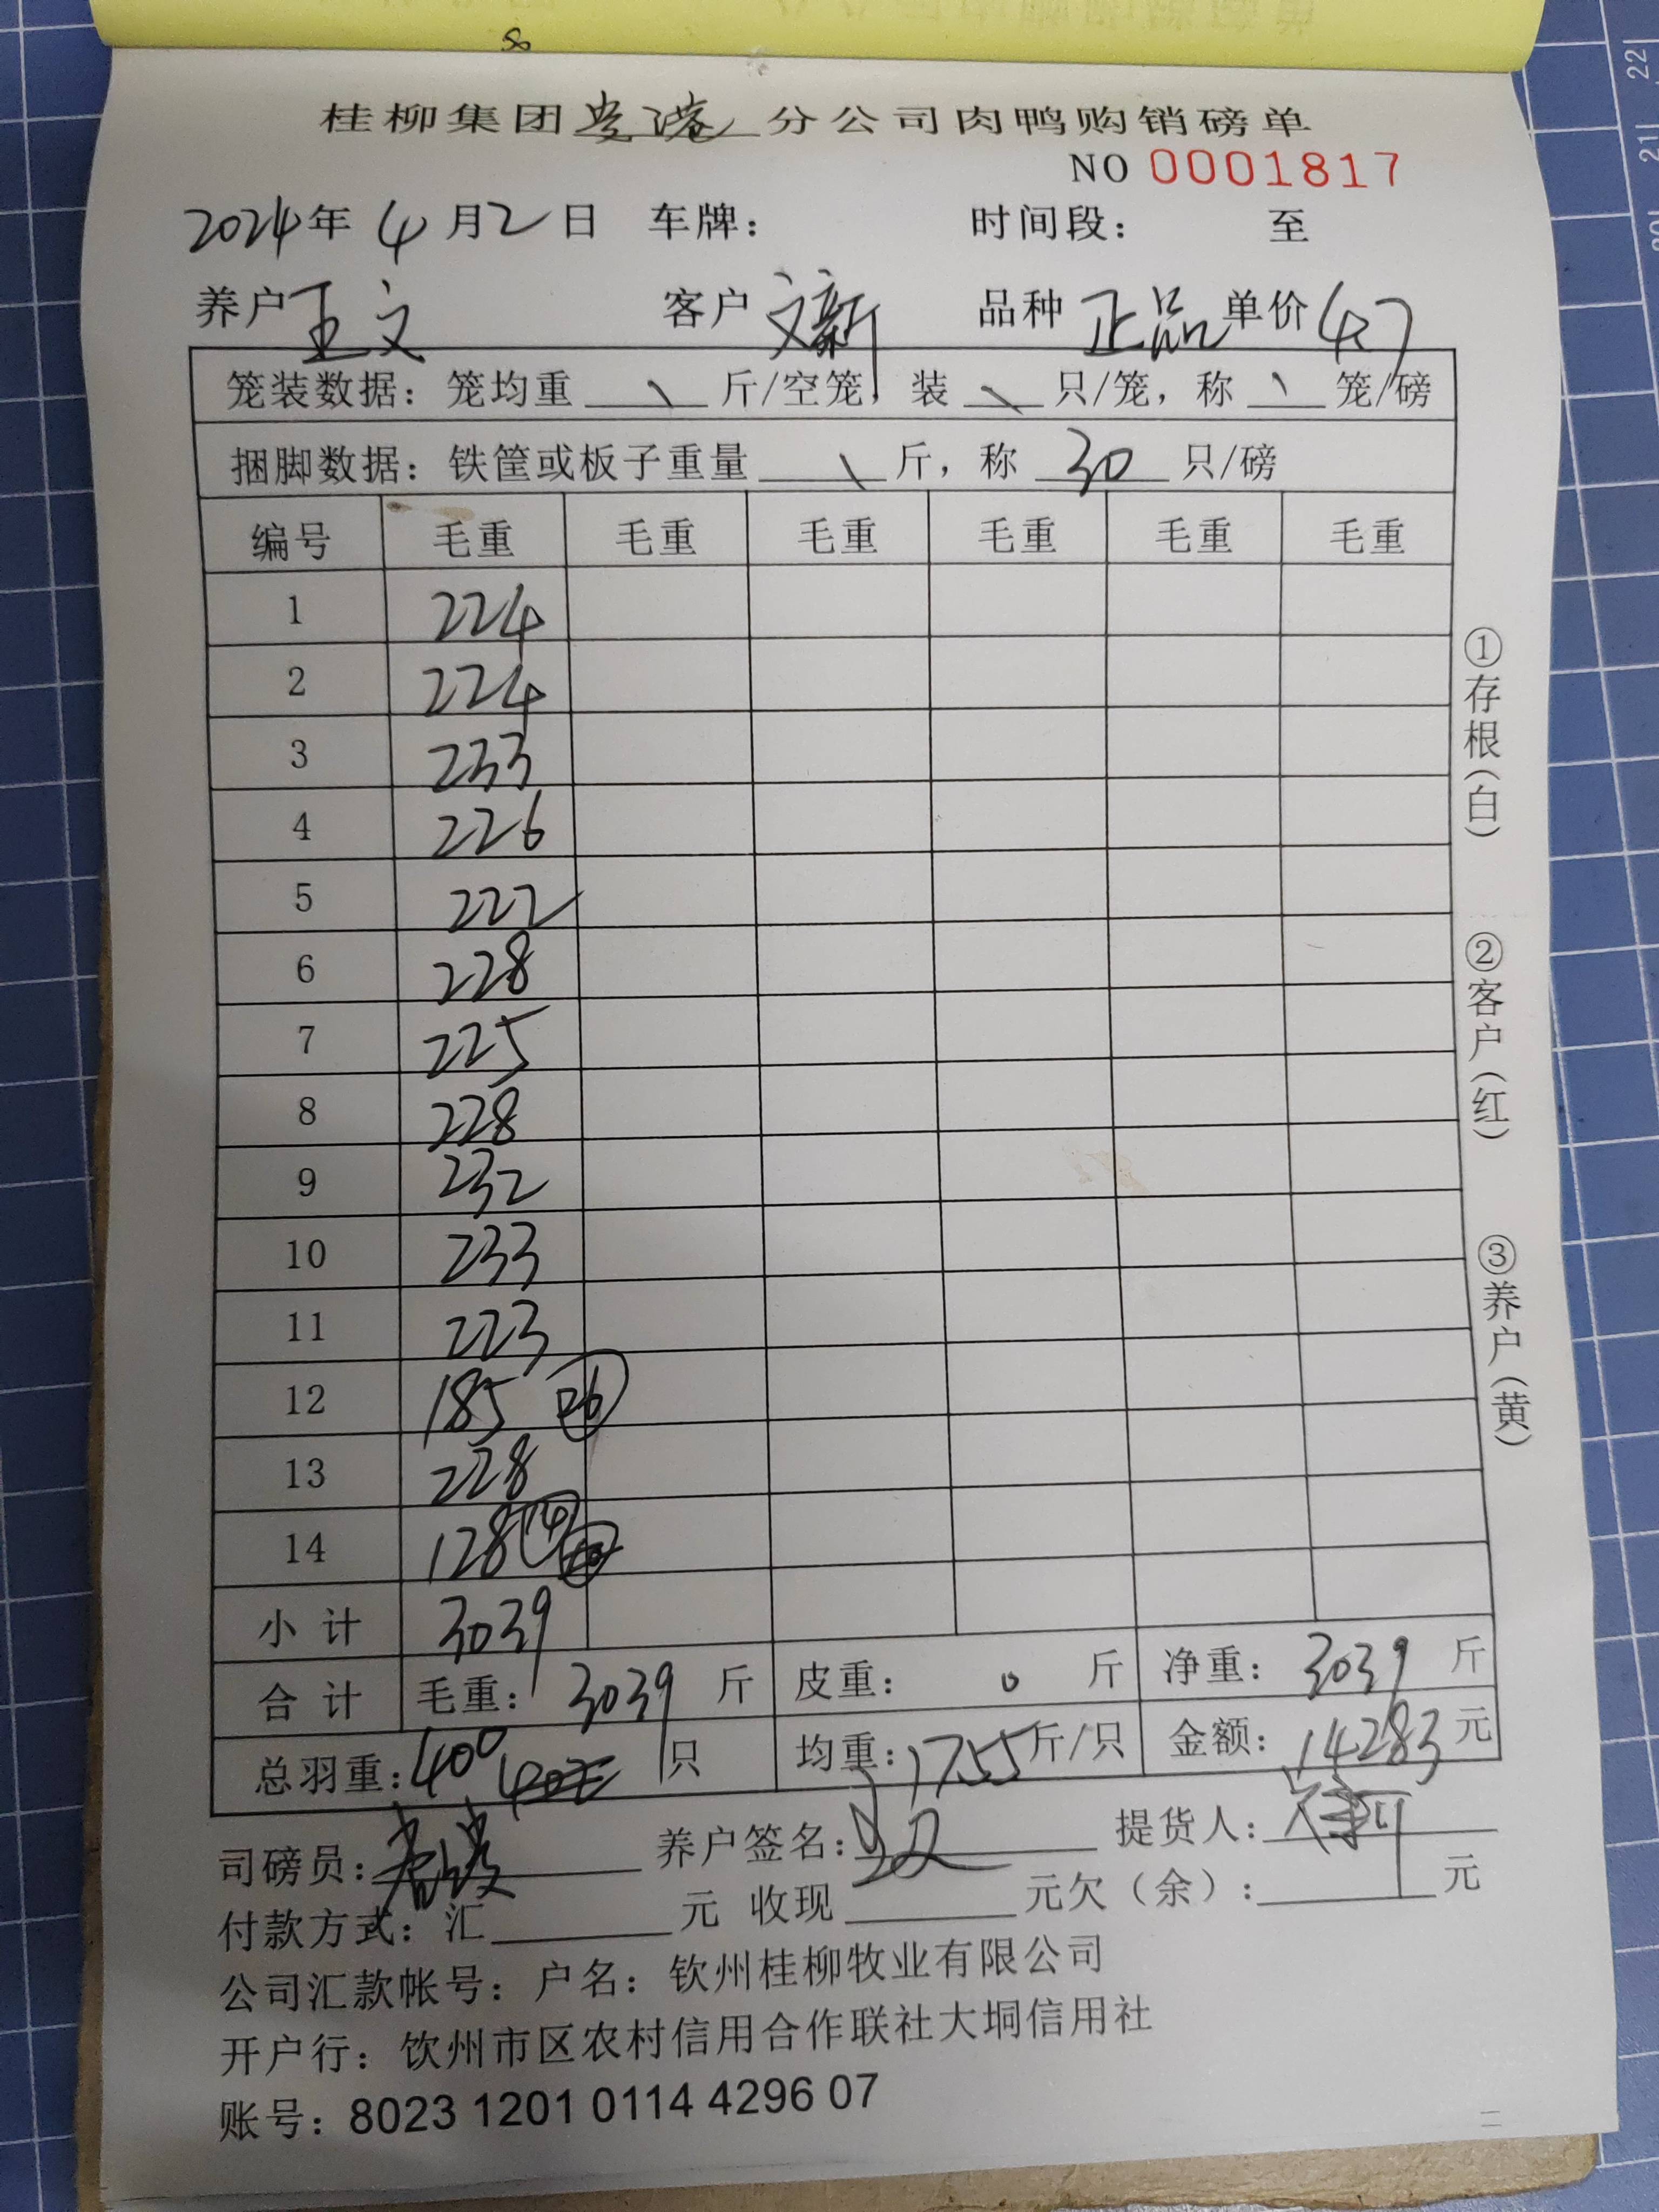 8
桂柳集团贵港分公司肉鸭购销磅单
NO 0001817
2024年 4月2日 车牌： 时间段： 至
养户王文 客户文新 品种正品 单价4.7
笼装数据：笼均重 \ 斤/空笼，装 \ 只/笼，称 \ 笼/磅
捆脚数据：铁筐或板子重量 \ 斤，称 30 只/磅
编号 毛重 毛重 毛重 毛重 毛重 毛重
1 224
2 224
3 233
4 226
5 222
6 228
7 225
8 228
9 232
10 233
11 223
12 185
13 228
14 128
小计 3039
合计 毛重：3039 斤 皮重：0 斤 净重：3039 斤
总羽重：400 只 均重：755斤/只 金额：14283元
司磅员： 养户签名： 提货人：
付款方式：汇 元 收现 元欠（余）： 元
公司汇款帐号：户名：钦州桂柳牧业有限公司
开户行：钦州市区农村信用合作联社大垌信用社
账号：8023 1201 0114 4296 07
①存根（白）
②客户（红）
③养户（黄）
22
21
20